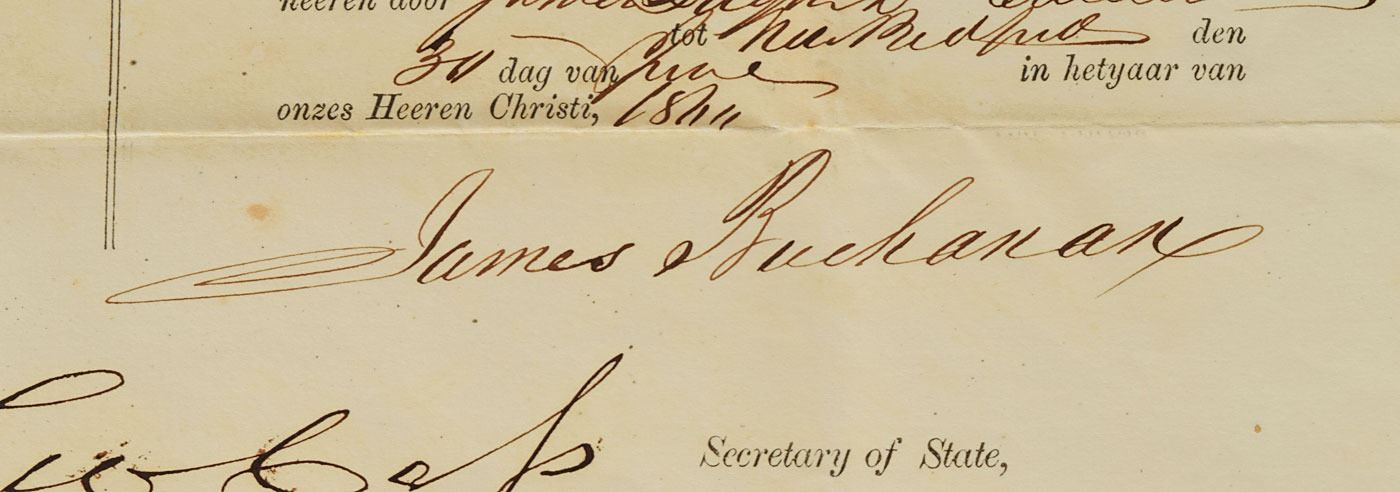 heeren door James Buchanan
tot New Bedford den
30 dag van June in hetyaar van
onzes Heeren Christi, 1860
James Buchanan
Lew Cass Secretary of State,